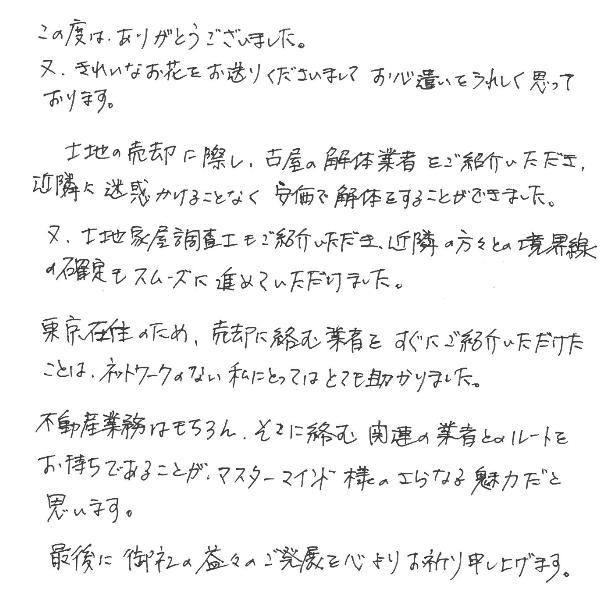 この度は、ありがとうございました。
又、きれいなお花をお送りくださいまして お心遣いをうれしく思って
おります。
土地の売却に際し、古屋の解体業者をご紹介いただき、
近隣に迷惑かけることなく 安価で解体をすることができました。
又、土地家屋調査士もご紹介いただき、近隣の方々との境界線
の確定もスムーズに進めていただけました。
東京在住のため、売却に絡む業者を すぐにご紹介いただけた
ことは、ネットワークのない私にとってはとても助かりました。
不動産業務はもちろん、そこに絡む 関連の業者とのルートを
お持ちであることが、マスターマインド様のさらなる魅力だと
思います。
最後に 御社の益々のご発展を心よりお祈り申し上げます。